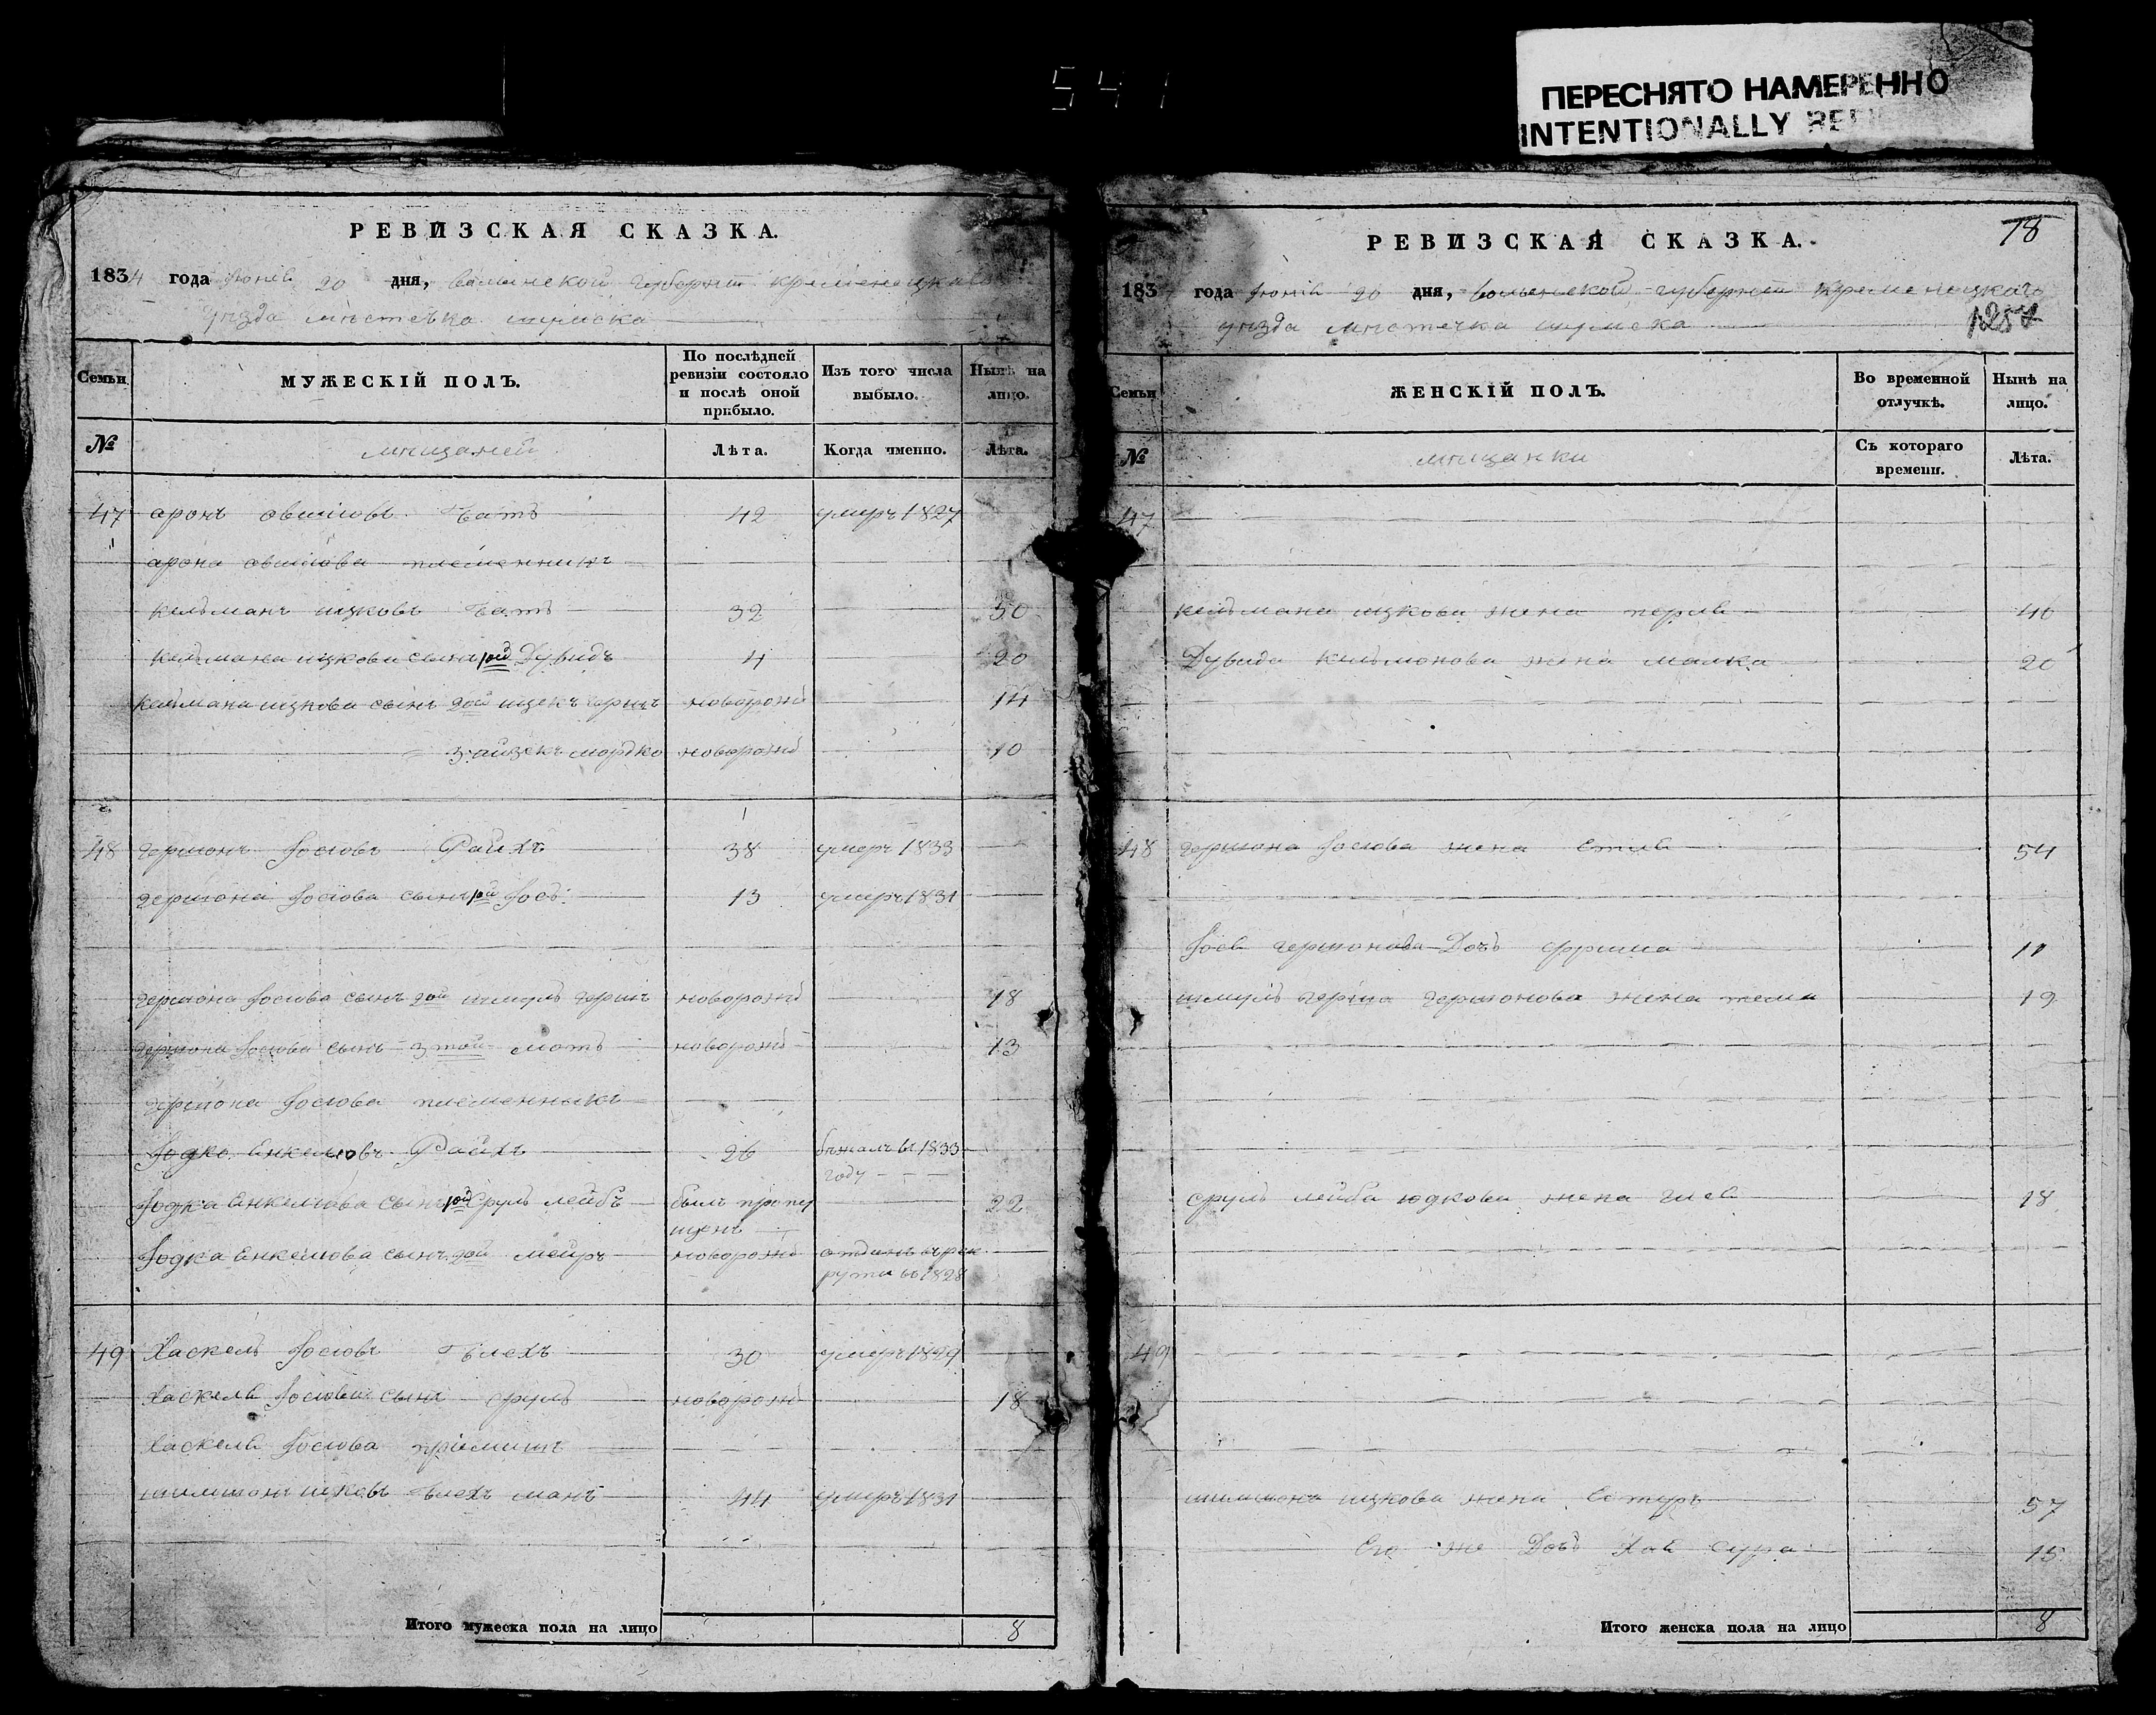 541
ПЕРЕСНЯТО НАМЕРЕННО
INTENTIONALLY
РЕВИЗСКАЯ СКАЗКА.
1834 года Іюня 20 дня, Волынской губерніи Кременецкаго
уѣзда мѣстечка Шумска
Семьи МУЖЕСКІЙ ПОЛЪ. По послѣдней ревизіи состояло и послѣ оной прибыло. Изъ того числа выбыло. Нынѣ на лицо.
№ мѣщаней Лѣта. Когда именно. Лѣта.
47 аронъ овшіовъ 42 умеръ 1827
арона овшіова племенникъ
кельманъ ицковъ 32 50
кельмана ицкова сынъ 1ой Дувидъ 4 20
кельмана ицкова сынъ 2ой ицекъ новорожд 14
3 айзекъ мордко новорожд 10
48 гершонъ Іосіовъ Райхъ 38 умеръ 1833
гершона Іосіова сынъ 1ой Іось 13 умеръ 1831
гершона Іосіова сынъ 2ой шмуль герш новорожд 18
гершона Іосіова сынъ 3той мотъ новорожд 13
гершона Іосіова племенникъ
Іодко Енкелювъ Райхъ 26 бѣжалъ въ 1833
году
Іодка Енкелюва сынъ 1ой сруль лейбъ былъ пропу 22
щенъ
Іодка Енкелюва сынъ 2ой мейръ новорожд отданъ въ рек
руты въ 1828
49 Хаскель Іосіовъ Блехъ 30 умеръ 1829
Хаскеля Іосіова сынъ сруль новорожд 18
Хаскеля Іосіова пріемышъ
шимшонъ ицковъ Блехъ манъ 44 умеръ 1831
Итого мужеска пола на лицо 8
78
РЕВИЗСКАЯ СКАЗКА.
183 года Іюня 20 дня, Волынской губерніи Кременецкаго
уѣзда мѣстечка Шумска
Семьи ЖЕНСКІЙ ПОЛЪ. Во временной отлучкѣ. Нынѣ на лицо.
№ мѣщанки Съ котораго времени. Лѣта.
47
кельмана ицкова жена перля 40
Дувида кельманова жена малка 20
48 гершона Іосіова жена 54
Іося гершонова Дочь фрима 11
шмуль герша гершонова жена тема 19
сруль лейба юдкова жена 18
49
шимшона ицкова жена Естуръ 57
Его же Дочь Хая сура 15
Итого женска пола на лицо 8